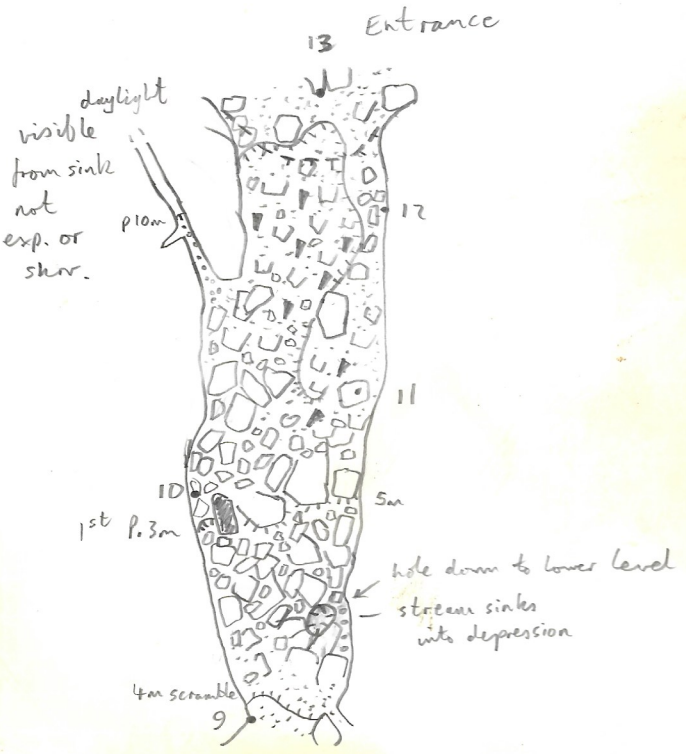 Entrance
13
daylight
visible
from sink
not
exp. or
surv.
p10m
12
11
10
5m
1st P.3m
hole down to lower level
stream sinks
into depression
4m scramble
9